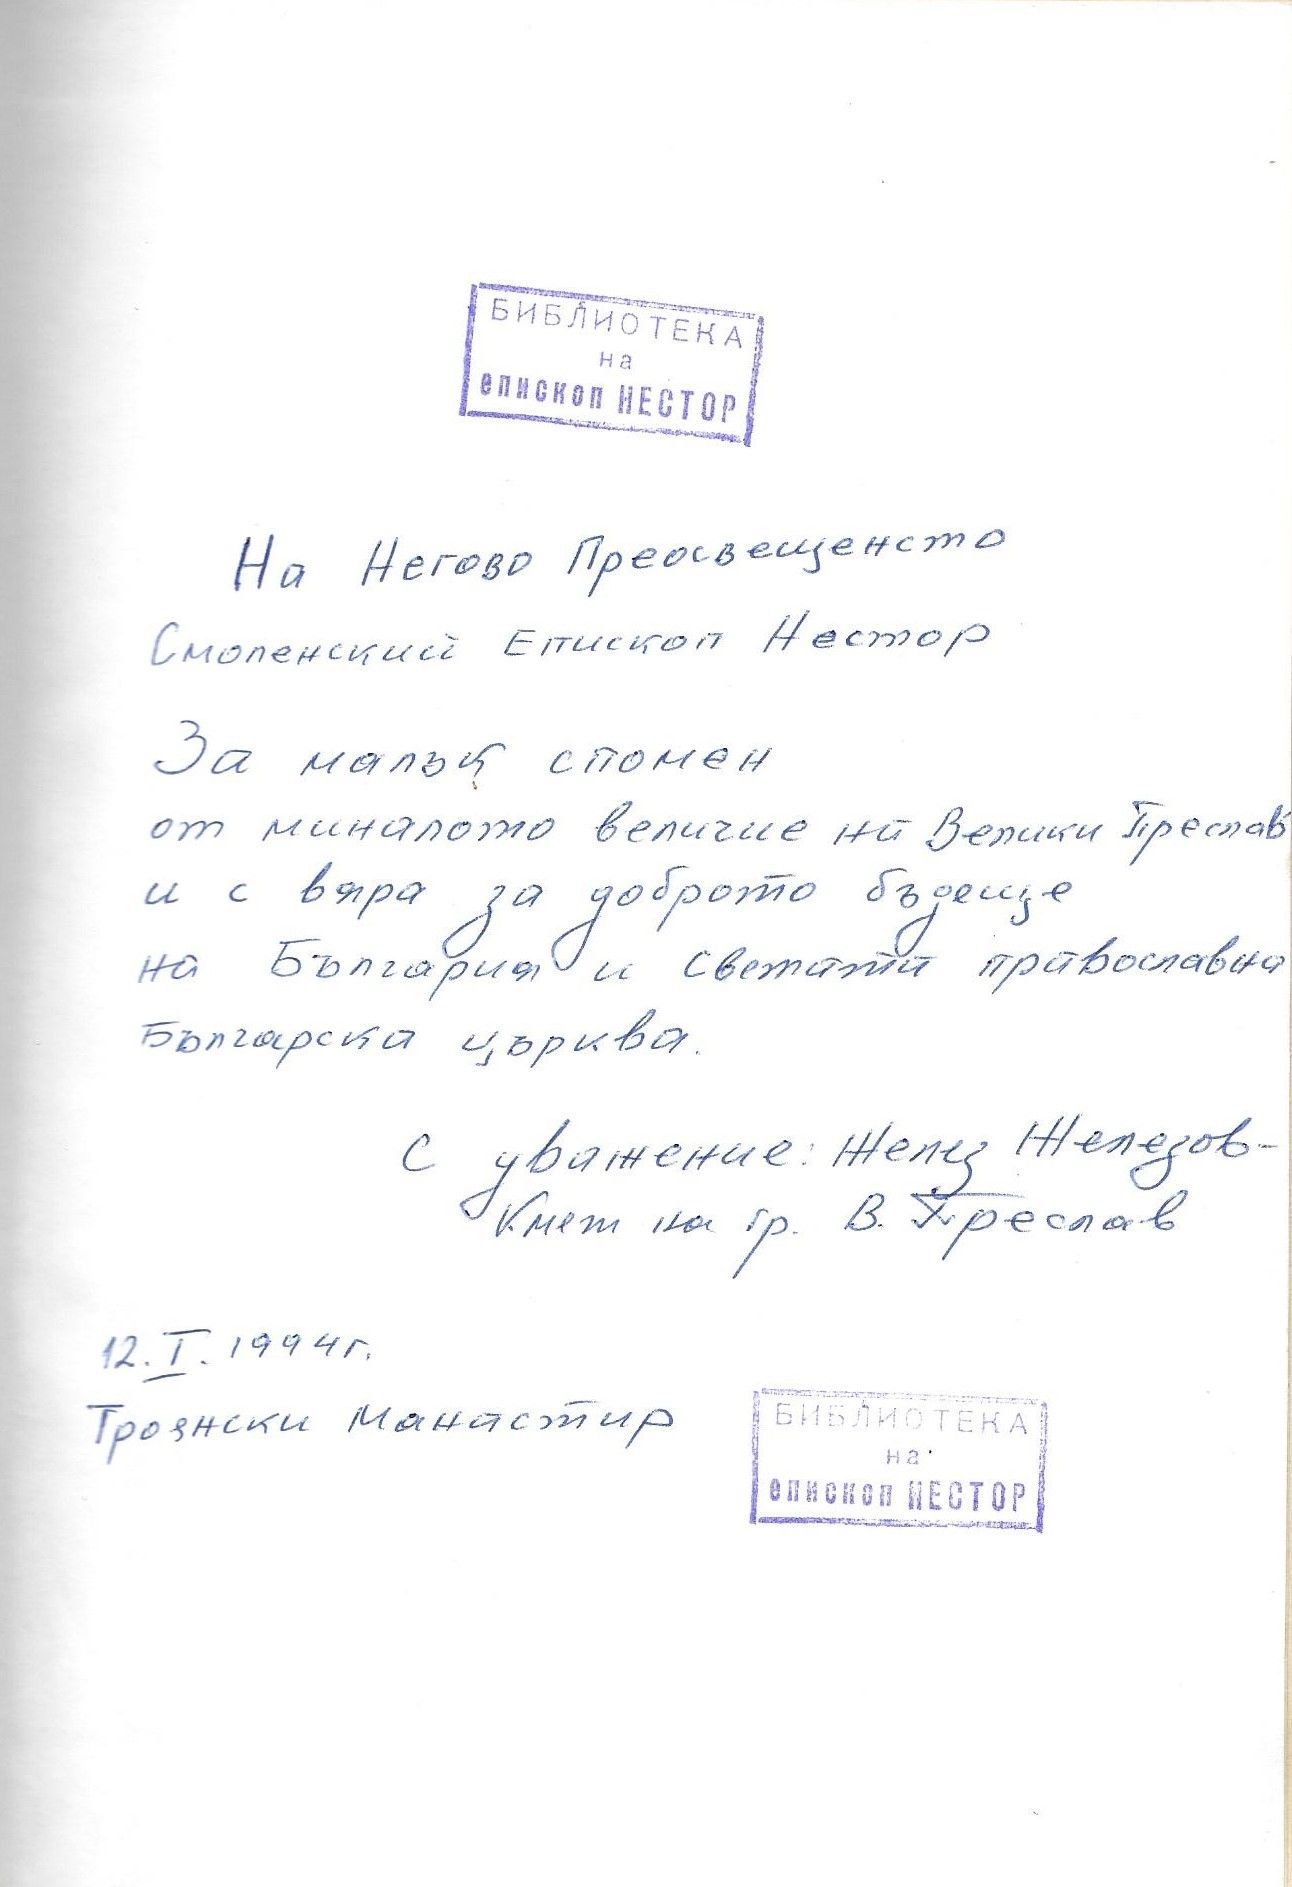 БИБЛИОТЕКА
на
епископ НЕСТОР
На Негово Преосвещенсто
Смоленский Епископ Нестор
За малък спомен
от миналото величие на Велики Преслав
и с вяра за доброто бъдеще
на България и Светата православна
Българска църква.
С уважение: Желез Железов-
Кмет на гр. В. Преслав
12.I.1994г.
Троянски Манастир
БИБЛИОТЕКА
на
епископ НЕСТОР